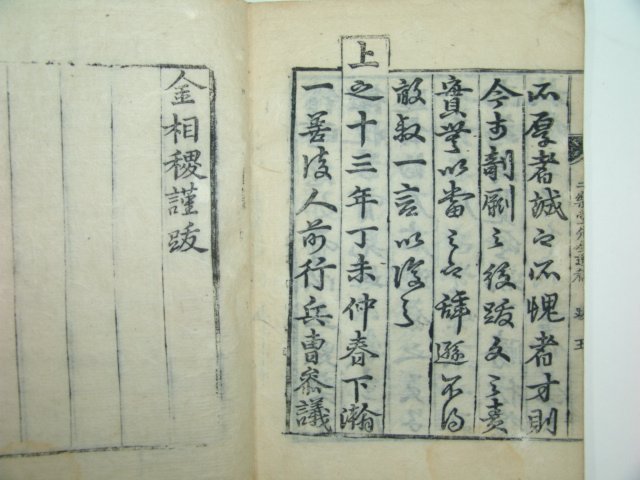 所厚者誠而所愧者才則
今於剞劂之後跋文之責
實無以當之而辞遜不得
敢叙一言以復之
上之十三年丁未仲春下瀚
一善後人前行兵曹參議
金相稷謹跋